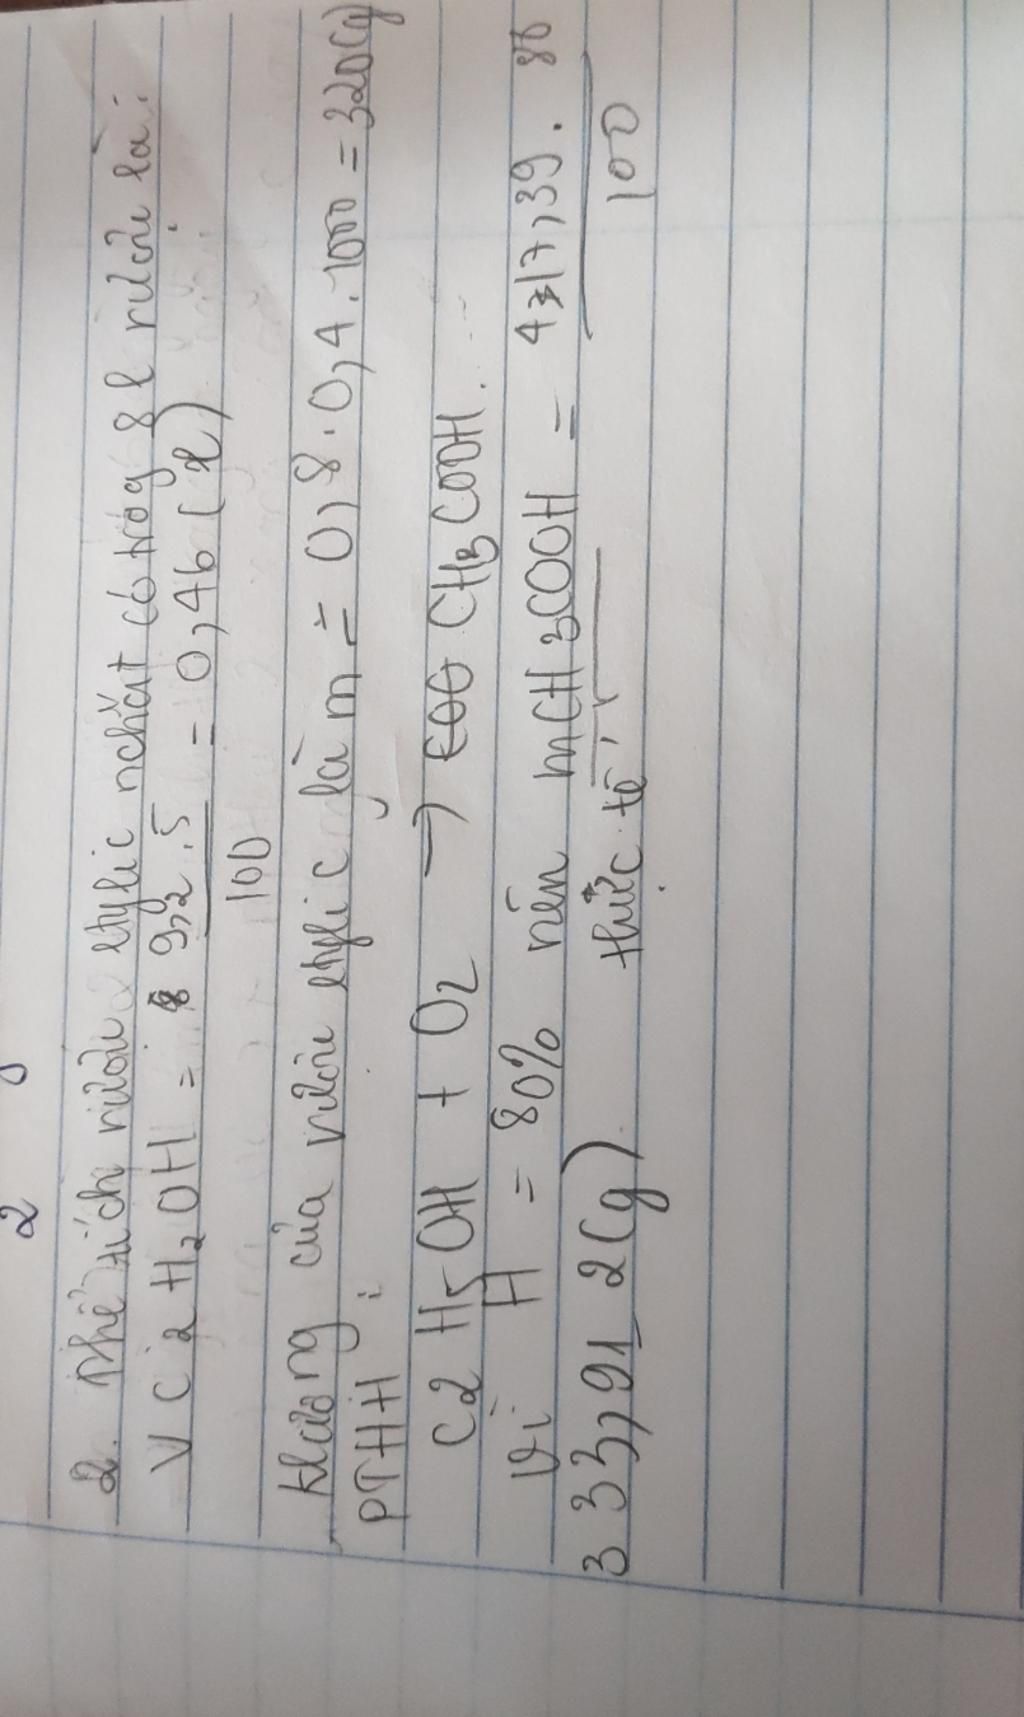 2. Thể tích rượu etylic nchất có trog 8 l rượu là:
V C2H2OH = 9,2.5 = 0,46 (l)
100
khượng của rượu etylic là m = 0,8.0,4.1000 = 320(g)
PTHH:
C2H5OH + O2 → CH3COOH
Vì H = 80% nên mCH3COOH = 417,39. 80
thức tế 100
333,912(g)